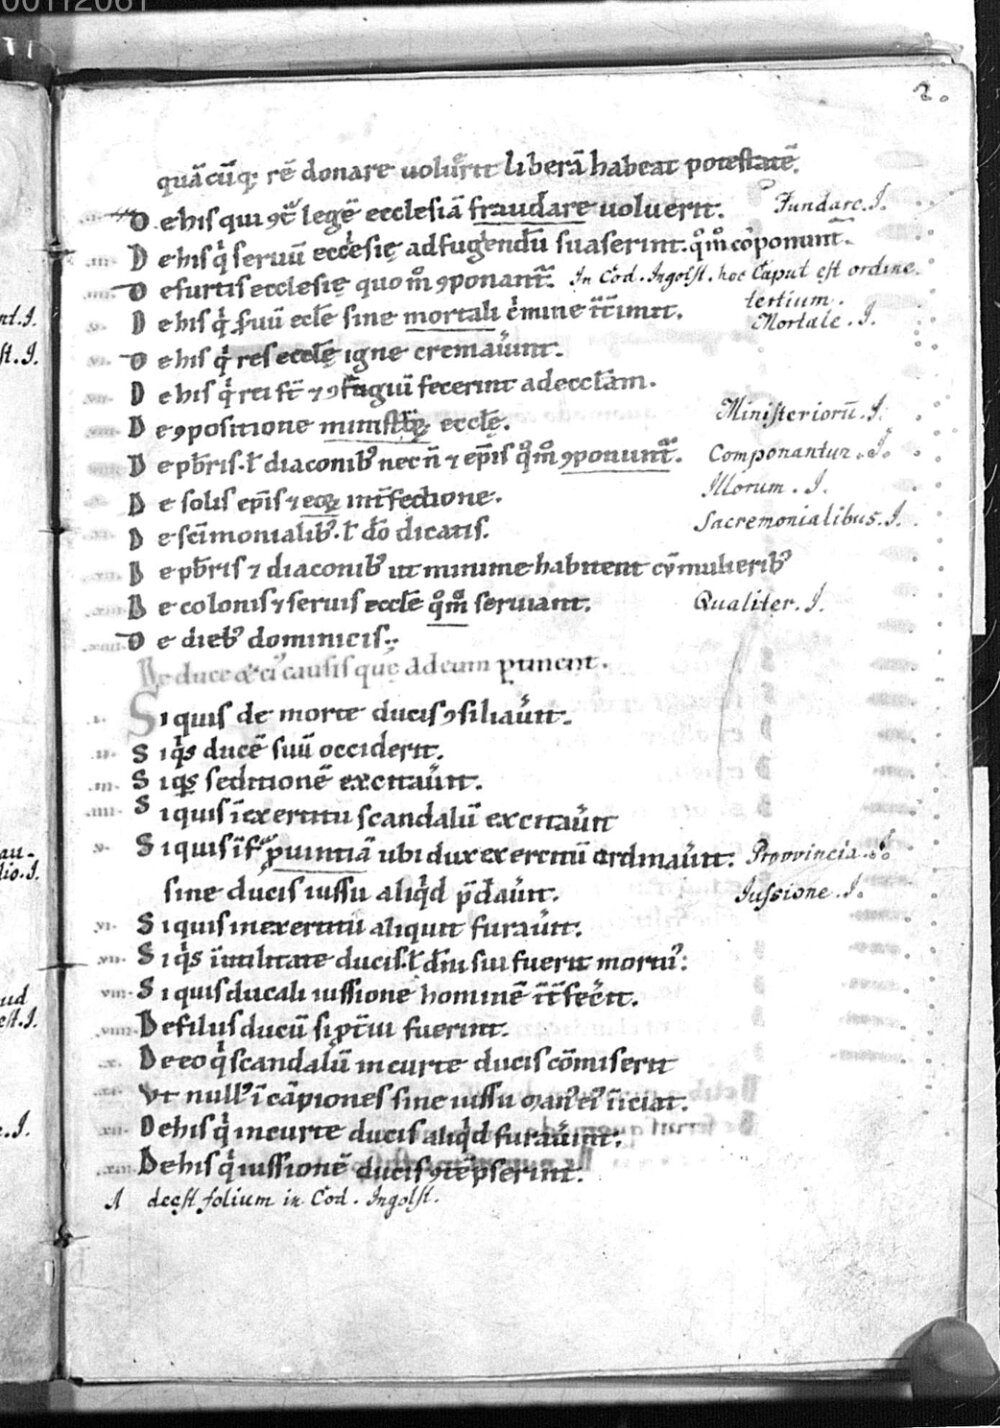 00112061
2.
quā cūq; rē donare uoluerit liberā habeat potestatē.
.ii. De his qui 9tͣ legē ecclesiā fraudare uoluerit. Fundare. J.
.iii. De his qͥ seruū ecclesię ad fugiendū suaserint. qͦmͦ cōponunt̄.
.iiii. De furtis ecclesię quo mͦ 9ponant̄. In Cod. Ingolst. hoc Caput est ordine tertium.
.v. De his qͥ seruū eccłe sine mortali cͥmine īt̄imit. Mortale. J.
.vi. De his qͥ res eccłę igne cremauer̄int.
.vii. De his qͥ rei st̄ ⁊ 9fugiū fecerint ad eccłam.
.viii. De 9positione ministꝝ eccłę. Ministeriorū. J.
De pb̄ris. ł diaconibꝰ nec n̄ ⁊ ep̄is qͦmͦ 9ponunt̄. Componantur. J.
De solis ep̄is ⁊ eoꝝ int̄fectione. Illorum. J.
De sc̄imonialibꝰ. ł dō dicatis. Sacremonialibus. J.
De pb̄ris ⁊ diaconibꝰ ut minime habitent cū mulieribꝰ
De colonis ⁊ seruis eccłe qͦmͦ seruiant. Qualiter. J.
De diebꝰ dominicis.;
De duce & ei causis que ad eum ꝑtinent.
.i. Si quis de morte ducis 9siliauer̄it.
.ii. Si qͥs ducē suū occiderit.
.iii. Si qͥs seditionē excitauer̄it.
.iiii. Si quis ī exercitu scandalū excitauer̄it
.v. Si quis īfͣ ꝓuintiā ubi dux exercitū ordinauer̄it. Provvincia. J.
sine ducis iussu aliqͥd p̄dauer̄it. Jussione. J.
.vi. Si quis in exercitu aliquit furauer̄it.
.vii. Si qͥs ī utilitate ducis. ł dn̄i sui fuerit mortuꝰ:
.viii. Si quis ducali iussione hominē īt̄fecer̄it.
.viiii. De filiis ducū si ꝓt̄ui fuerint.
.x. De eo qͥ scandalū in curte ducis cōmiserit
.xi. Ut nullꝰ ī cāpiones sine iussu manꝰ eiꝰ īiciat.
.xii. De his qͥ in curte ducis aliqͥd furauer̄int;
.xiii. De his qͥ iussionē ducis 9tēpserint.
A deest folium in Cod. Ingolst.
nt. J.
st. J.